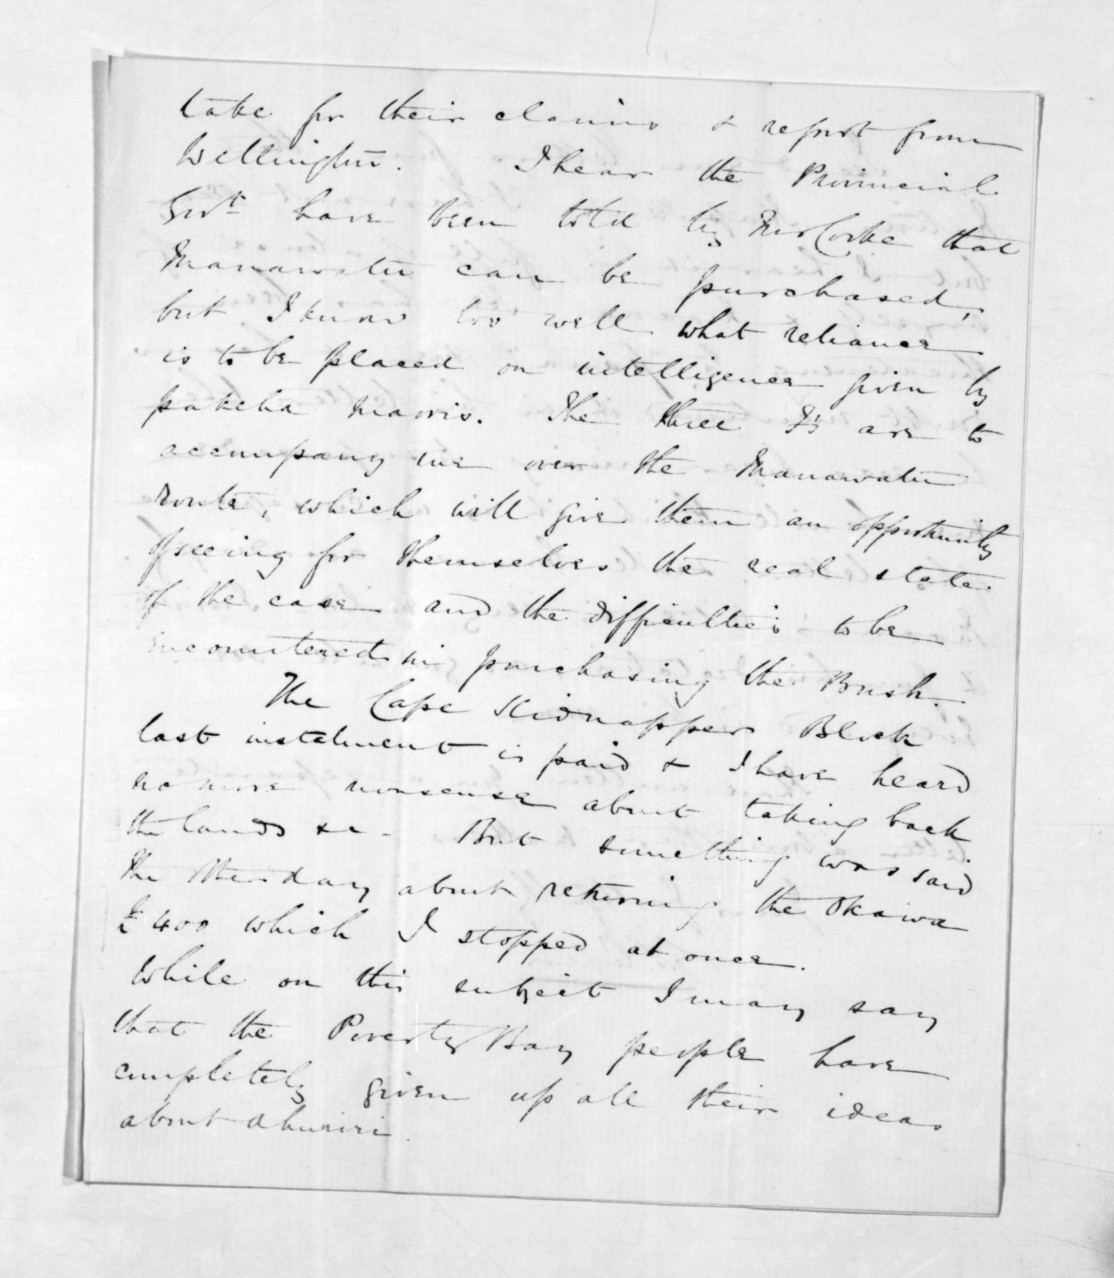 take for their claims & report from
Wellington. I hear the Provincial
Govt. have been told by Mr Cooke that
Manawatu can be purchased,
but I know too well what reliance
is to be placed on intelligence given by
pakeha maoris. The three T's are to
accompany me over the Manawatu
route, which will give them an opportunity
of seeing for themselves the real state
of the case and the difficulties to be
encountered in purchasing the Bush.
The Cape Kidnappers Block
last instalment is paid & I have heard
no more nonsense about taking back
the lands &c - But something was said
the other day about returning the Okawa
£400 which I stopped at once.
While on this subject I may say
that the Poverty Bay people have
completely given up all their ideas
about Ahuriri.